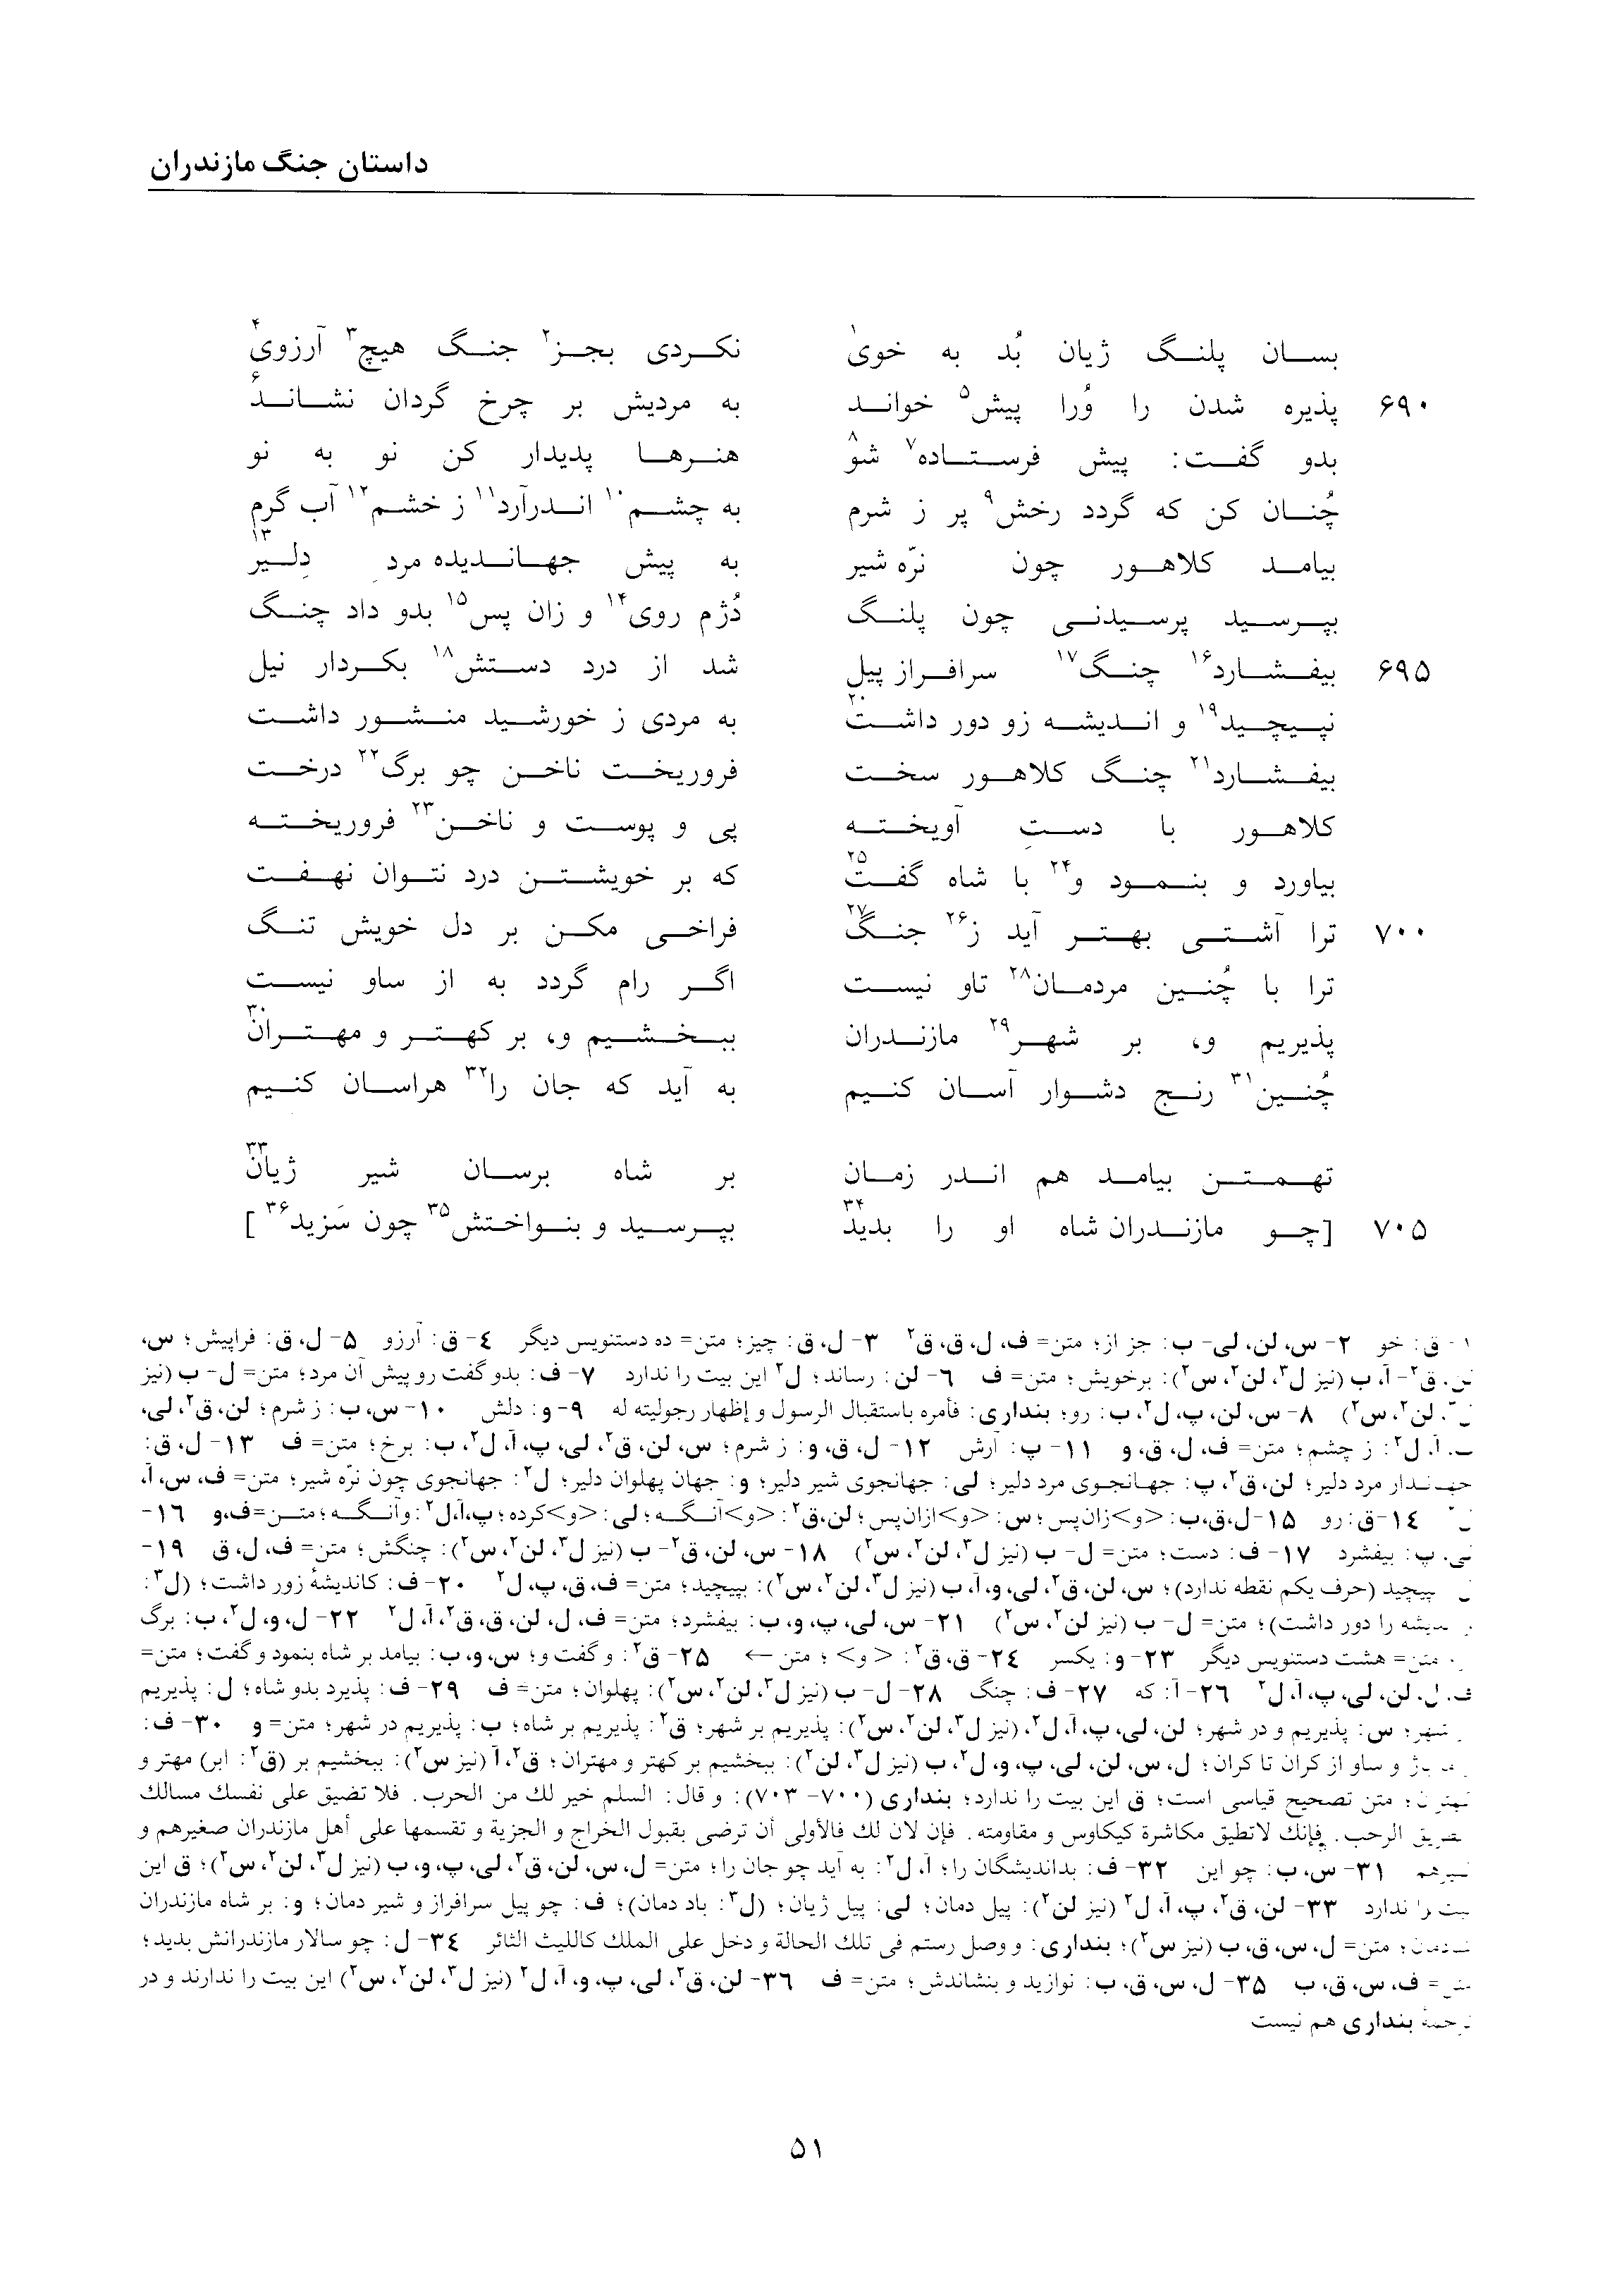 داستان جنگ مازندران
بسان پلنگ ژیان بُد به خوی۱ نکردی بجز۲ جنگ هیچ۳ آرزوی۴
۶۹۰ پذیره شدن را وُرا پیش۵ خواند به مردیش بر چرخ گردان نشاند۶
بدو گفت: پیش فرستاده۷ شو۸ هنرها پدیدار کن نو به نو
چُنان کن که گردد رخش۹ پر ز شرم به چشم۱۰ اندرآرد۱۱ ز خشم۱۲ آب گرم
بیامد کلاهور چون نرّه شیر به پیش جهاندیده مرد دِلیر۱۳
بپرسید پرسیدنی چون پلنگ دُژم روی۱۴ و زان پس۱۵ بدو داد چنگ
۶۹۵ بیفشارد۱۶ چنگ۱۷ سرافراز پیل شد از درد دستش۱۸ بکردار نیل
نپیچید۱۹ و اندیشه زو دور داشت۲۰ به مردی ز خورشید منشور داشت
بیفشارد۲۱ چنگ کلاهور سخت فروریخت ناخن چو برگ۲۲ درخت
کلاهور با دستِ آویخته پی و پوست و ناخن۲۳ فروریخته
بیاورد و بنمود و۲۴ با شاه گفت۲۵ که بر خویشتن درد نتوان نهفت
۷۰۰ ترا آشتی بهتر آید ز۲۶ جنگ۲۷ فراخی مکن بر دل خویش تنگ
ترا با چُنین مردمان۲۸ تاو نیست اگر رام گردد به از ساو نیست
پذیریم و، بر شهر۲۹ مازندران ببخشیم و، بر کهتر و مهتران۳۰
چُنین۳۱ رنج دشوار آسان کنیم به آید که جان را۳۲ هراسان کنیم
تهمتن بیامد هم اندر زمان بر شاه برسان شیر ژیان۳۳
۷۰۵ [چو مازندران شاه او را بدید۳۴ بپرسید و بنواختش۳۵ چون سَزید۳۶]
۱- ق: خو ۲- س، لن، لی- ب: جز از؛ متن= ف، ل، ق، ق۲ ۳- ل، ق: چیز؛ متن= ده دستنویس دیگر ۴- ق: آرزو ۵- ل، ق: فراپیش؛ س،
لن، ق۲- آ، ب (نیز ل۳، لن۲، س۲): برخویش؛ متن= ف ۶- لن: رساند؛ ل۲ این بیت را ندارد ۷- ف: بدو گفت رو پیش آن مرد؛ متن= ل- ب (نیز
ل۳، لن۲، س۲) ۸- س، لن، پ، ل۲، ب: رو؛ بنداری: فأمره باستقبال الرسول و إظهار رجولیته له ۹- و: دلش ۱۰- س، ب: ز شرم؛ لن، ق۲، لی،
آ، ل۲: ز چشم؛ متن= ف، ل، ق، و ۱۱- پ: آرش ۱۲- ل، ق، و: ز شرم؛ س، لن، ق۲، لی، پ، آ، ل۲، ب: برخ؛ متن= ف ۱۳- ل، ق:
جهاندار مرد دلیر؛ لن، ق۲، پ: جهانجوی مرد دلیر؛ لی: جهانجوی شیر دلیر؛ و: جهان پهلوان دلیر؛ ل۲: جهانجوی چون نرّه شیر؛ متن= ف، س، آ،
۱۴- ق: رو ۱۵- ل، ق، ب: <و> زان پس؛ س: <و> ازان پس؛ لن، ق۲: <و> آنگه؛ لی: <و> کرده؛ پ، آ، ل۲: وآنگه؛ متن= ف، و ۱۶-
لی، پ: بیفشرد ۱۷- ف: دست؛ متن= ل- ب (نیز ل۳، لن۲، س۲) ۱۸- س، لن، ق۲- ب (نیز ل۳، لن۲، س۲): چنگش؛ متن= ف، ل، ق ۱۹-
پیچید (حرف یکم نقطه ندارد)؛ س، لن، ق۲، لی، و، آ، ب (نیز ل۳، لن۲، س۲): بپیچید؛ متن= ف، ق، پ، ل۲ ۲۰- ف: کاندیشهٔ زور داشت؛ (ل۳:
اندیشه را دور داشت)؛ متن= ل- ب (نیز لن۲، س۲) ۲۱- س، لی، پ، و، ب: بیفشرد؛ متن= ف، ل، لن، ق، ق۲، آ، ل۲ ۲۲- ل، و، ل۲، ب: برگ
متن= هشت دستنویس دیگر ۲۳- و: یکسر ۲۴- ق، ق۲: <و>؛ متن ← ۲۵- ق۲: و گفت و؛ س، و، ب: بیامد بر شاه بنمود و گفت؛ متن=
ف، ل، لن، لی، پ، آ، ل۲ ۲۶- آ: که ۲۷- ف: چنگ ۲۸- ل- ب (نیز ل۳، لن۲، س۲): پهلوان؛ متن= ف ۲۹- ف: پذیرد بدو شاه؛ ل: پذیریم
شهر؛ س: پذیریم و در شهر؛ لن، لی، پ، آ، ل۲، (نیز ل۳، لن۲، س۲): پذیریم بر شهر؛ ق۲: پذیریم بر شاه؛ ب: پذیریم در شهر؛ متن= و ۳۰- ف:
و ساو از کران تا کران؛ ل، س، لن، لی، پ، و، ل۲، ب (نیز ل۳، لن۲): ببخشیم بر کهتر و مهتران؛ ق۲، آ (نیز س۲): ببخشیم بر (ق۲: ابر) مهتر و
کهتران؛ متن تصحیح قیاسی است؛ ق این بیت را ندارد؛ بنداری (۷۰۰- ۷۰۳): و قال: السلم خیر لك من الحرب. فلا تضیق علی نفسك مسالك
طریق الرحب. فإنك لاتطیق مکاشرة کیکاوس و مقاومته. فإن لان لك فالأولی أن ترضی بقبول الخراج و الجزیة و تقسمها علی أهل مازندران صغیرهم و
کبیرهم ۳۱- س، ب: چو این ۳۲- ف: بداندیشگان را؛ آ، ل۲: به آید چو جان را؛ متن= ل، س، لن، ق۲، لی، پ، و، ب (نیز ل۳، لن۲، س۲)؛ ق این
بیت را ندارد ۳۳- لن، ق۲، پ، آ، ل۲ (نیز لن۲): پیل دمان؛ لی: پیل ژیان؛ (ل۳: باد دمان)؛ ف: چو پیل سرافراز و شیر دمان؛ و: بر شاه مازندران
شادمان؛ متن= ل، س، ق، ب (نیز س۲)؛ بنداری: و وصل رستم فی تلك الحالة و دخل علی الملك کاللیث الثائر ۳۴- ل: چو سالار مازندرانش بدید؛
متن= ف، س، ق، ب ۳۵- ل، س، ق، ب: نوازید و بنشاندش؛ متن= ف ۳۶- لن، ق۲، لی، پ، و، آ، ل۲ (نیز ل۳، لن۲، س۲) این بیت را ندارند و در
ترجمهٔ بنداری هم نیست
۵۱